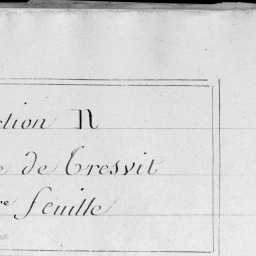 ction N
e de Cresvit
re feuille